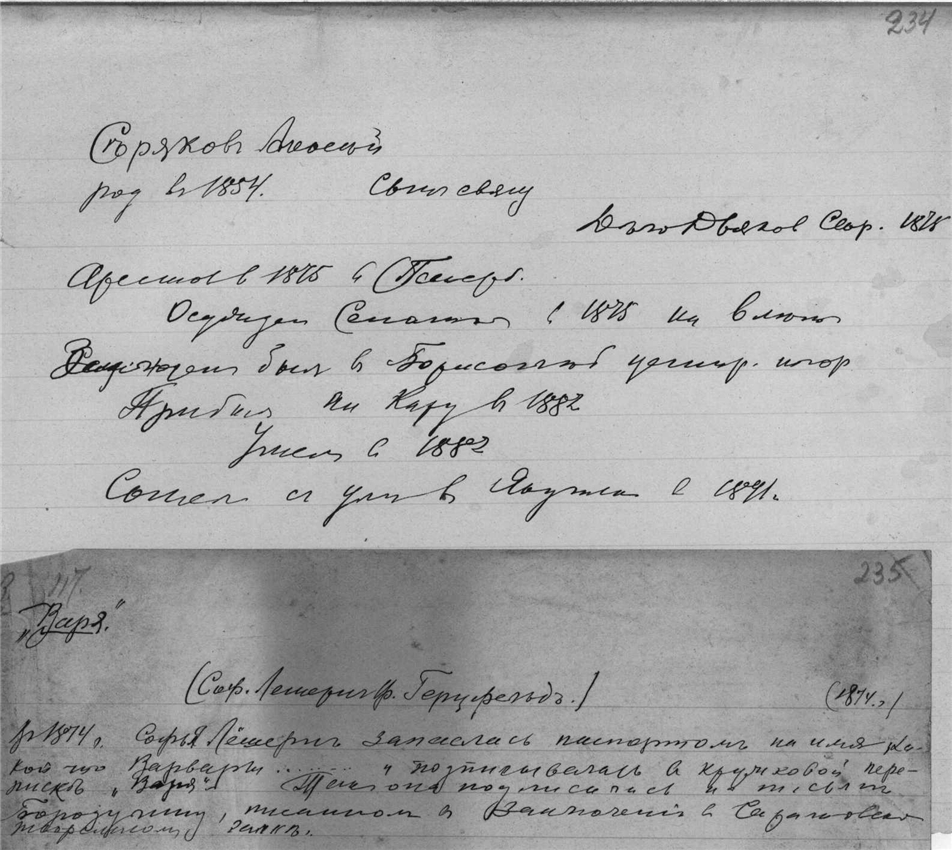 234
Сѣряковъ Алексѣй
род въ 1854. Сынъ свящ
Дѣло Дьяков Сѣр. 1875
Арестов в 1875 в Петерб.
Осужден Сенатом в 1875 на
был в Борисоглѣб централ.
Прибыл на Кару в 1882
Умер в 1882
в Якутск в 1891.
235
117.
„Варя."
(Соф. Лешернъ ф. Герцфельдъ.) (1874 г.)
Въ 1874 г. Софья Лешернъ запаслась паспортомъ на имя ка-
кой то Варвары ........ и подписывалась в кружковой пере-
пискѣ „Варя". она подписалась на письмѣ
Бородулину, писанном в заключеніи в Саратовском
тюремному замкѣ.